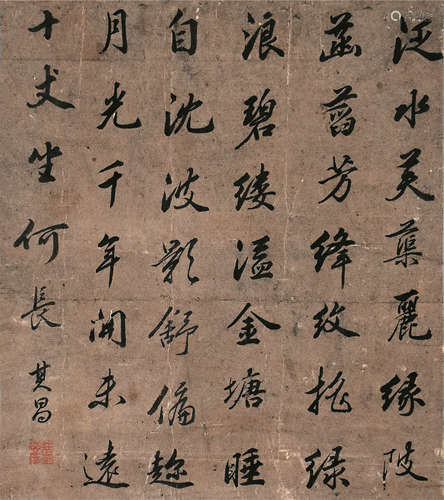 泛水芙蕖麗緣陂
菡萏芳絳紋拖綠
浪碧縷溢金塘睡
自沈波影舒偏趂
月光千年開未遠
十丈坐何長
其昌